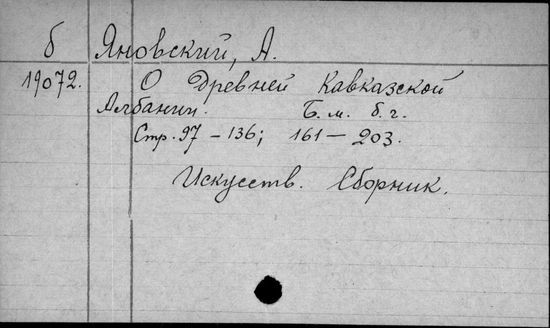 б Яновский, А.
19072. О Древней Кавказской
Албании. Б. м. б. г.
Стр. 97 – 136; 161 – 203.
Искусств. Сборник.